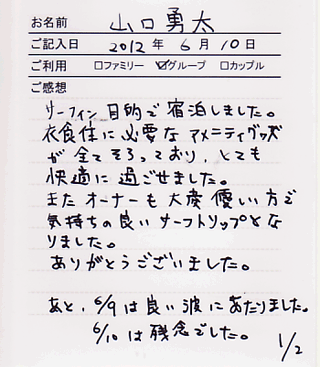 お名前 山口勇太
ご記入日 2012年 6月 10日
ご利用 □ファミリー ☑グループ □カップル
ご感想
サーフィン目的で宿泊しました。
衣食住に必要なアメニティグッズ
が全てそろっており、とても
快適に過ごせました。
またオーナーも大変優しい方で
気持ちの良いサーフトリップとな
りました。
ありがとうございました。
あと、6/9は良い波にあたりました。
6/10は残念でした。
1/2